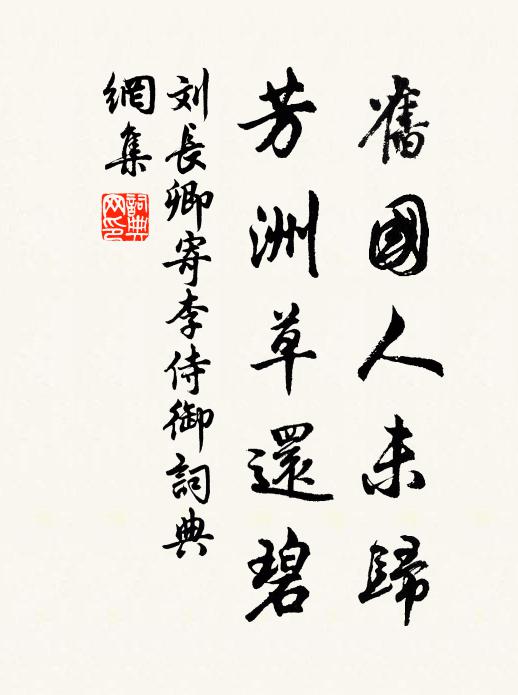 舊國人未歸
芳洲草還碧
刘長卿寄李侍御詞典
網集
詞典网印